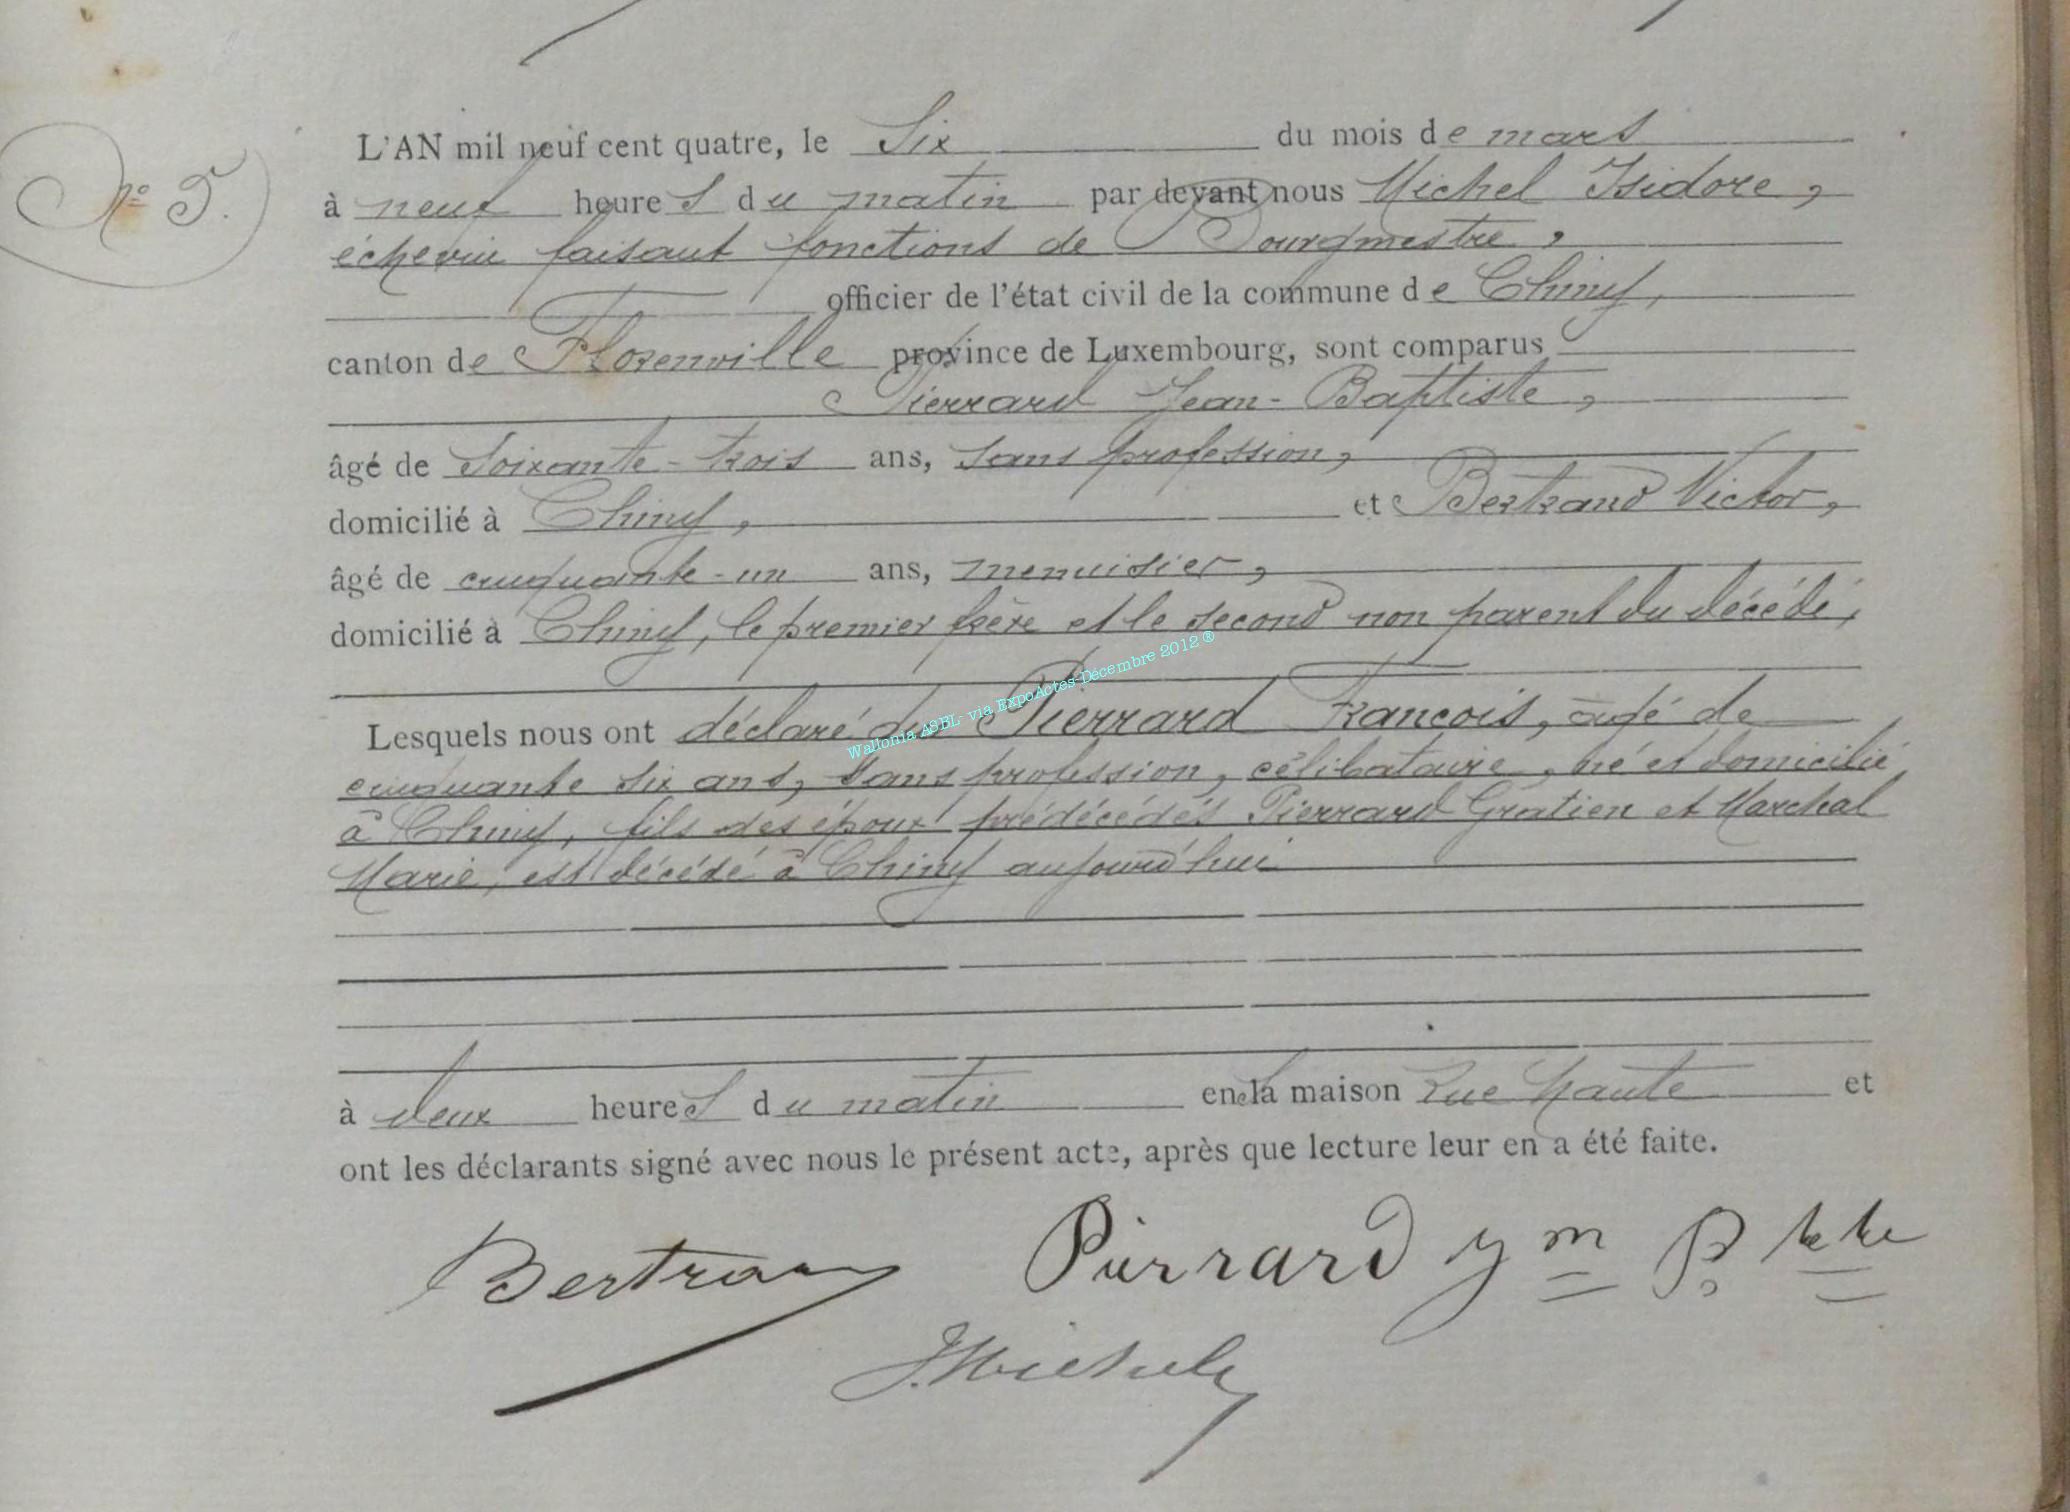 L'AN mil neuf cent quatre, le Six du mois de mars
N° 5.
à neuf heures du matin par devant nous Michel Isidore,
échevin faisant fonctions de Bourgmestre,
officier de l'état civil de la commune de Chiny,
canton de Florenville province de Luxembourg, sont comparus
Pierrard Jean-Baptiste,
âgé de soixante-trois ans, sans profession,
domicilié à Chiny, et Bertrand Victor,
âgé de cinquante-un ans, menuisier,
domicilié à Chiny, le premier frère et le second non parent du décédé,
Wallonia ASBL- via ExpoActes-Décembre 2012 ®
Lesquels nous ont déclaré que Pierrard François, âgé de
cinquante six ans, sans profession, célibataire, né et domicilié
à Chiny, fils des époux prédécédés Pierrard Gratien et Marchal
Marie, est décédé à Chiny aujourd'hui
à deux heures du matin en sa maison Rue Haute et
ont les déclarants signé avec nous le présent acte, après que lecture leur en a été faite.
Bertrand Pierrard
I. Michel